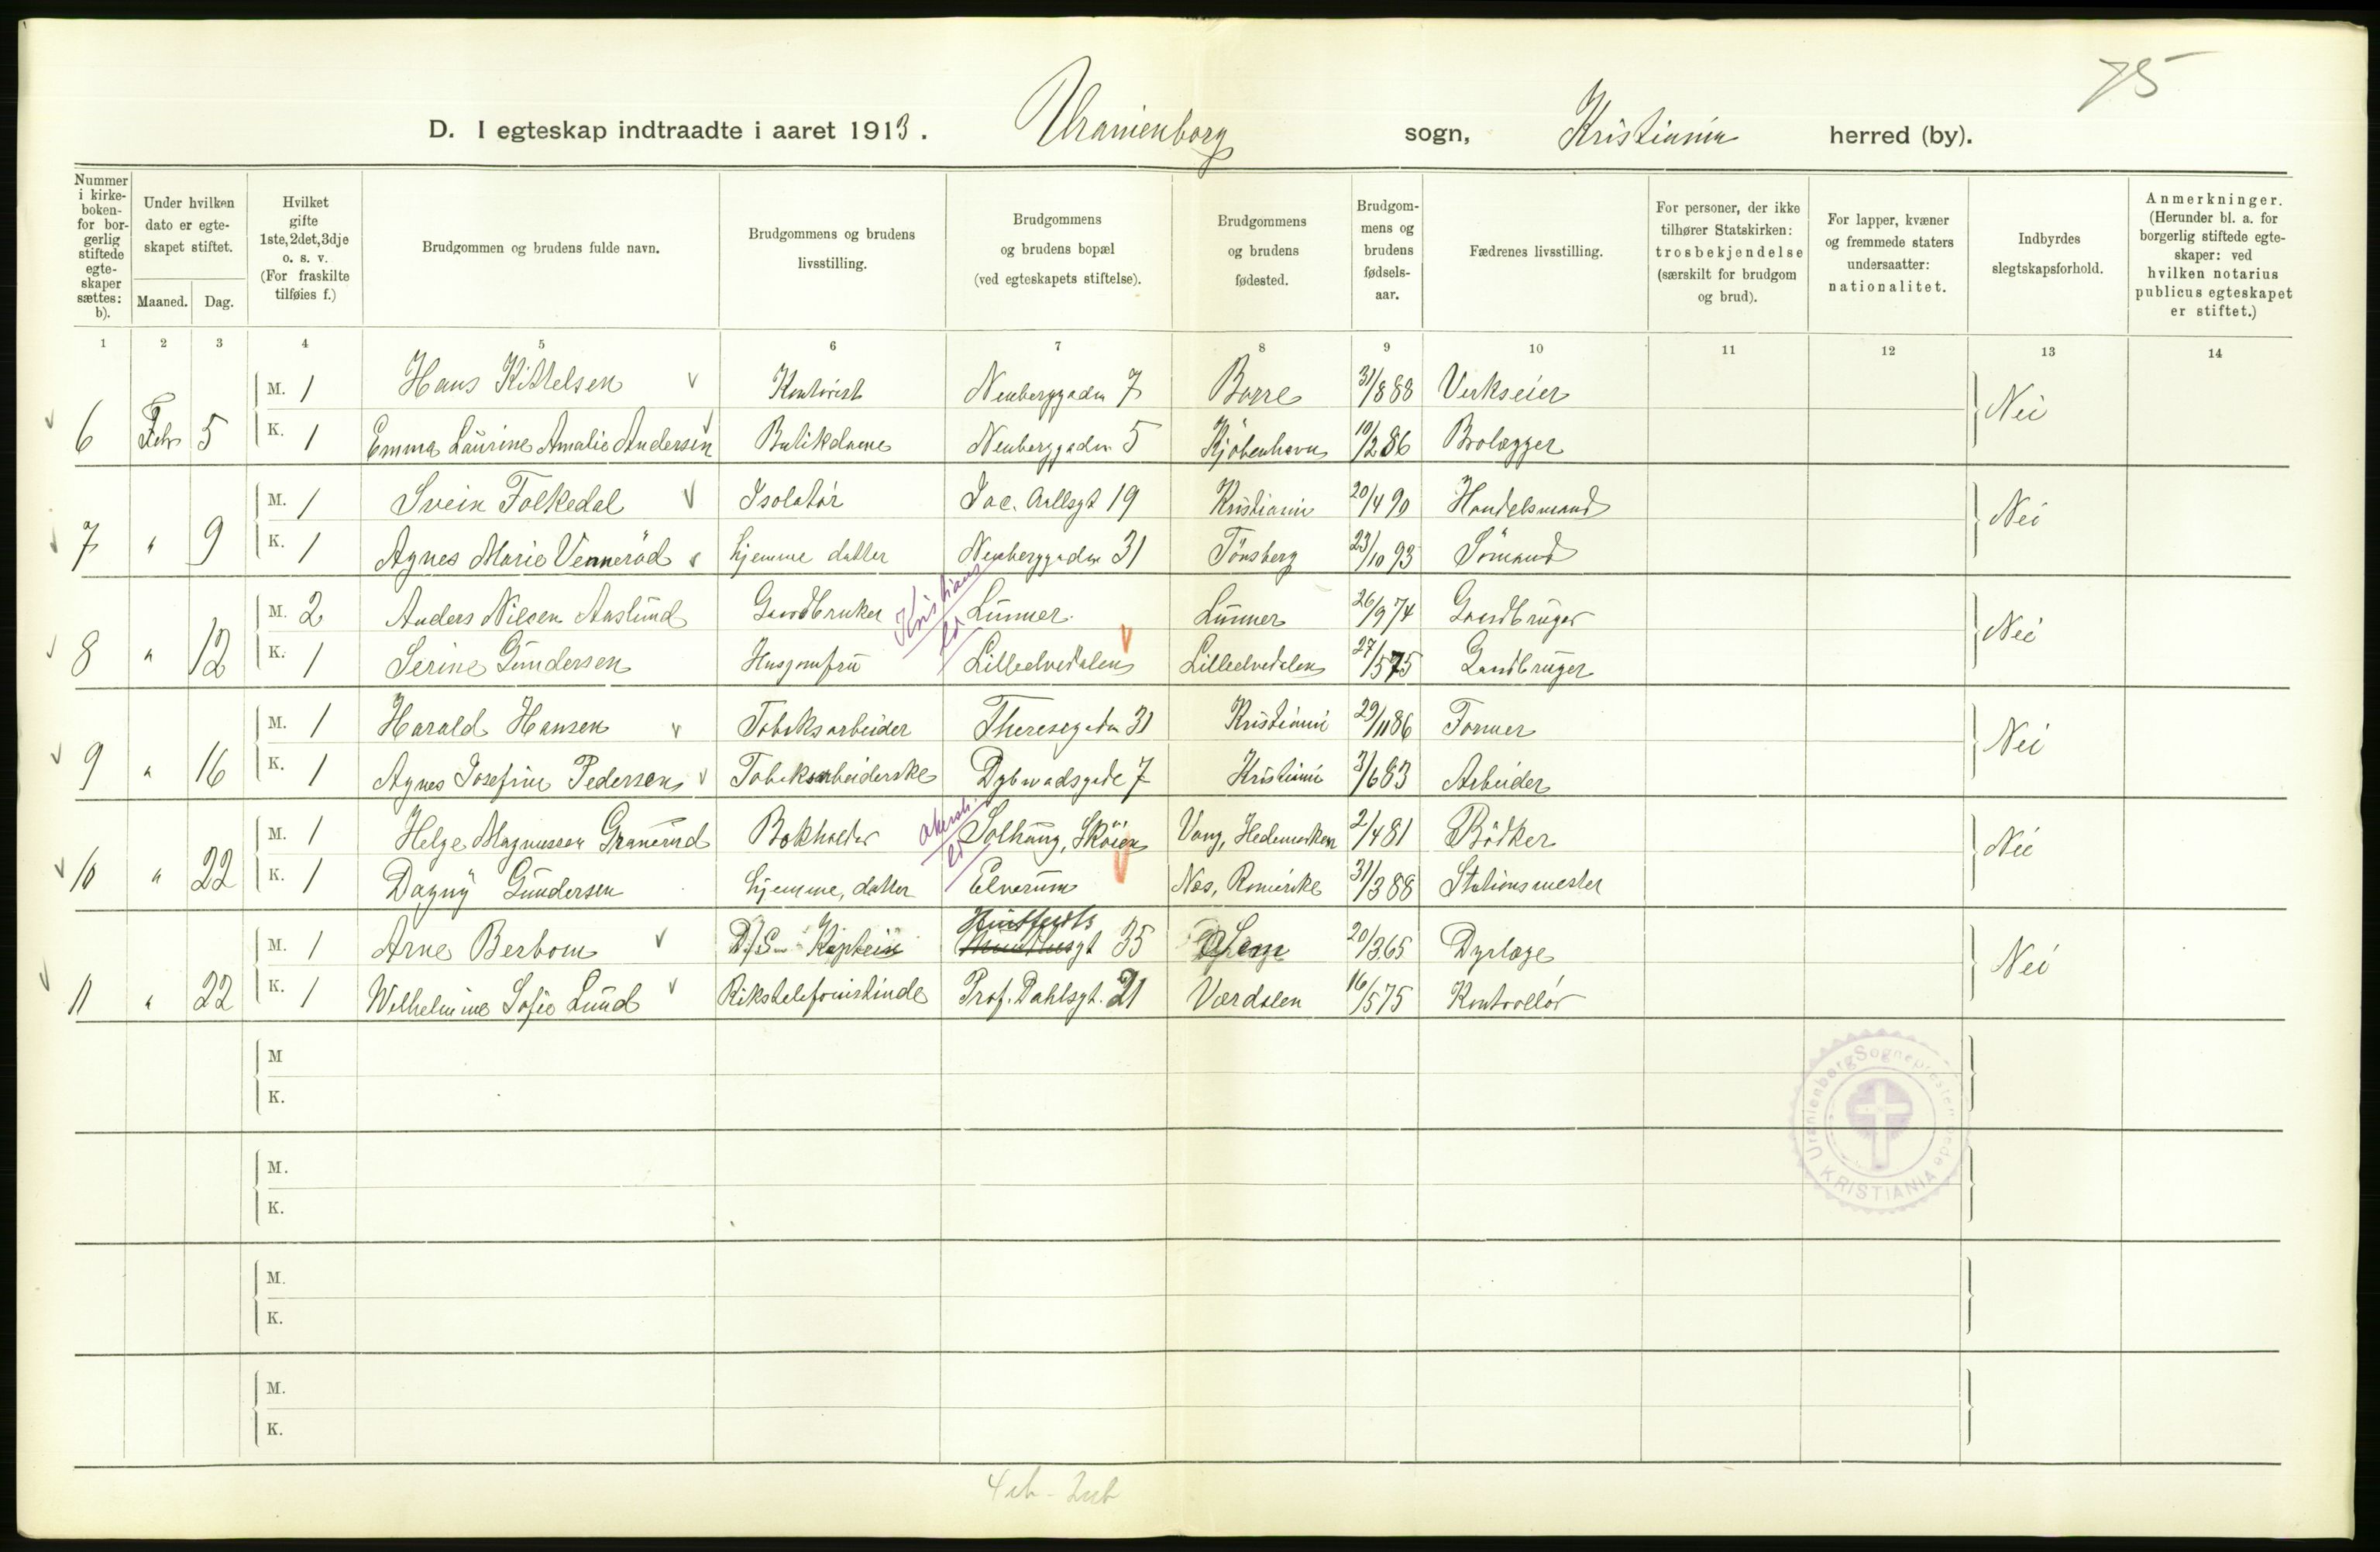 75
D. I egteskap indtraadte i aaret 1913. Uranienborg sogn, Kristiania herred (by).
Nummer i kirkeboken- for borgerlig stiftede egteskaper sættes: b).
Under hvilken dato er egteskapet stiftet.
Maaned. Dag.
Hvilket gifte 1ste, 2det, 3dje o. s. v. (For fraskilte tilføies f.)
Brudgommen og brudens fulde navn.
Brudgommens og brudens livsstilling.
Brudgommens og brudens bopæl (ved egteskapets stiftelse).
Brudgommens og brudens fødested.
Brudgommens og brudens fødselsaar.
Fædrenes livsstilling.
For personer, der ikke tilhører Statskirken: trosbekjendelse (særskilt for brudgom og brud).
For lapper, kvæner og fremmede staters undersaatter: nationalitet.
Indbyrdes slegtskapsforhold.
Anmerkninger. (Herunder bl. a. for borgerlig stiftede egteskaper: ved hvilken notarius publicus egteskapet er stiftet.)
1 2 3 4 5 6 7 8 9 10 11 12 13 14
M. 1 Hans Kittelsen Kontorist Neuberggaden 7 Borre 31/8 88 Verkseier
6 Febr 5 K. 1 Emma Laurine Amalie Andersen Butikdame Neuberggaden 5 Kjöbenhavn 10/2 86 Brolægger Nei
M. 1 Svein Folkedal Isolatør Jac. Aallsgt 19 Kristiania 20/4 90 Handelsmand
7 " 9 K. 1 Agnes Marie Vennerød hjemme datter Neuberggaden 31 Tønsberg 23/10 93 Sömand Nei
Kristians
M. 2 Anders Nilsen Aaslund Gaardbruker Lunner Lunner 26/9 74 Gaardbruger
8 " 12 K. 1 Serine Gundersen Husjomfru Lilleelvedalen Lilleelvedalen 27/5 75 Gaardbruger Nei
M. 1 Harald Hansen Tobaksarbeider Theresegaden 31 Kristiania 29/11 86 Former
9 " 16 K. 1 Agnes Josefine Pedersen Tobaksarbeiderske Dybwadsgade 7 Kristiania 3/6 83 Arbeider Nei
Akersh.
M. 1 Helge Magnussen Granerud Bokholder Solhaug, Sköien Vang, Hedemarken 2/4 81 Bödker
10 " 22 K. 1 Dagny Gundersen hjemme, datter Elverum Nes, Romerike 31/3 88 Stationsmester Nei
M. 1 Arne Berbom Kaptein Huitfeldts gt 35 20/3 65 Dyrlæge
11 " 22 K. 1 Wilhelmine Sofie Lund Rikstelefonistinde Prof. Dahlsgt. 21 Værdalen 16/5 75 Kontrollør Nei
M
K.
M.
K.
M.
K.
M.
K.
Uranienborg Sogneprestembede
KRISTIANIA